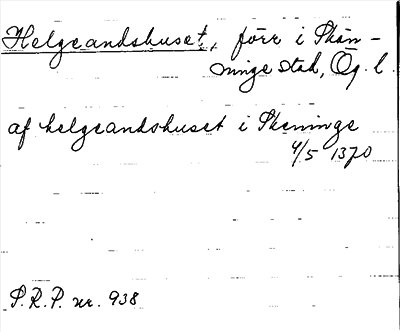 Helgeandshuset, förr i Skän-
ninge stad, Ög. l.
af helgeandshuset i Skeninge
4/5 1370
S.R.P. nr. 938